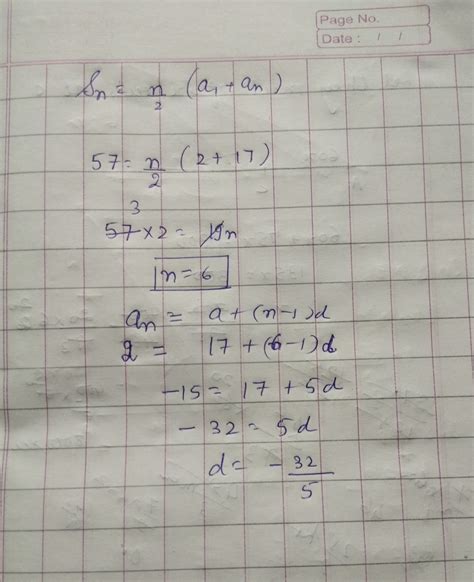 Page No.
Date : / /
Sn = n/2 (a1 + an)
57 = n/2 (2 + 17)
3
57 × 2 = 19n
n = 6
an = a + (n-1)d
2 = 17 + (6-1)d
-15 = 17 + 5d
- 32 = 5d
d = - 32/5